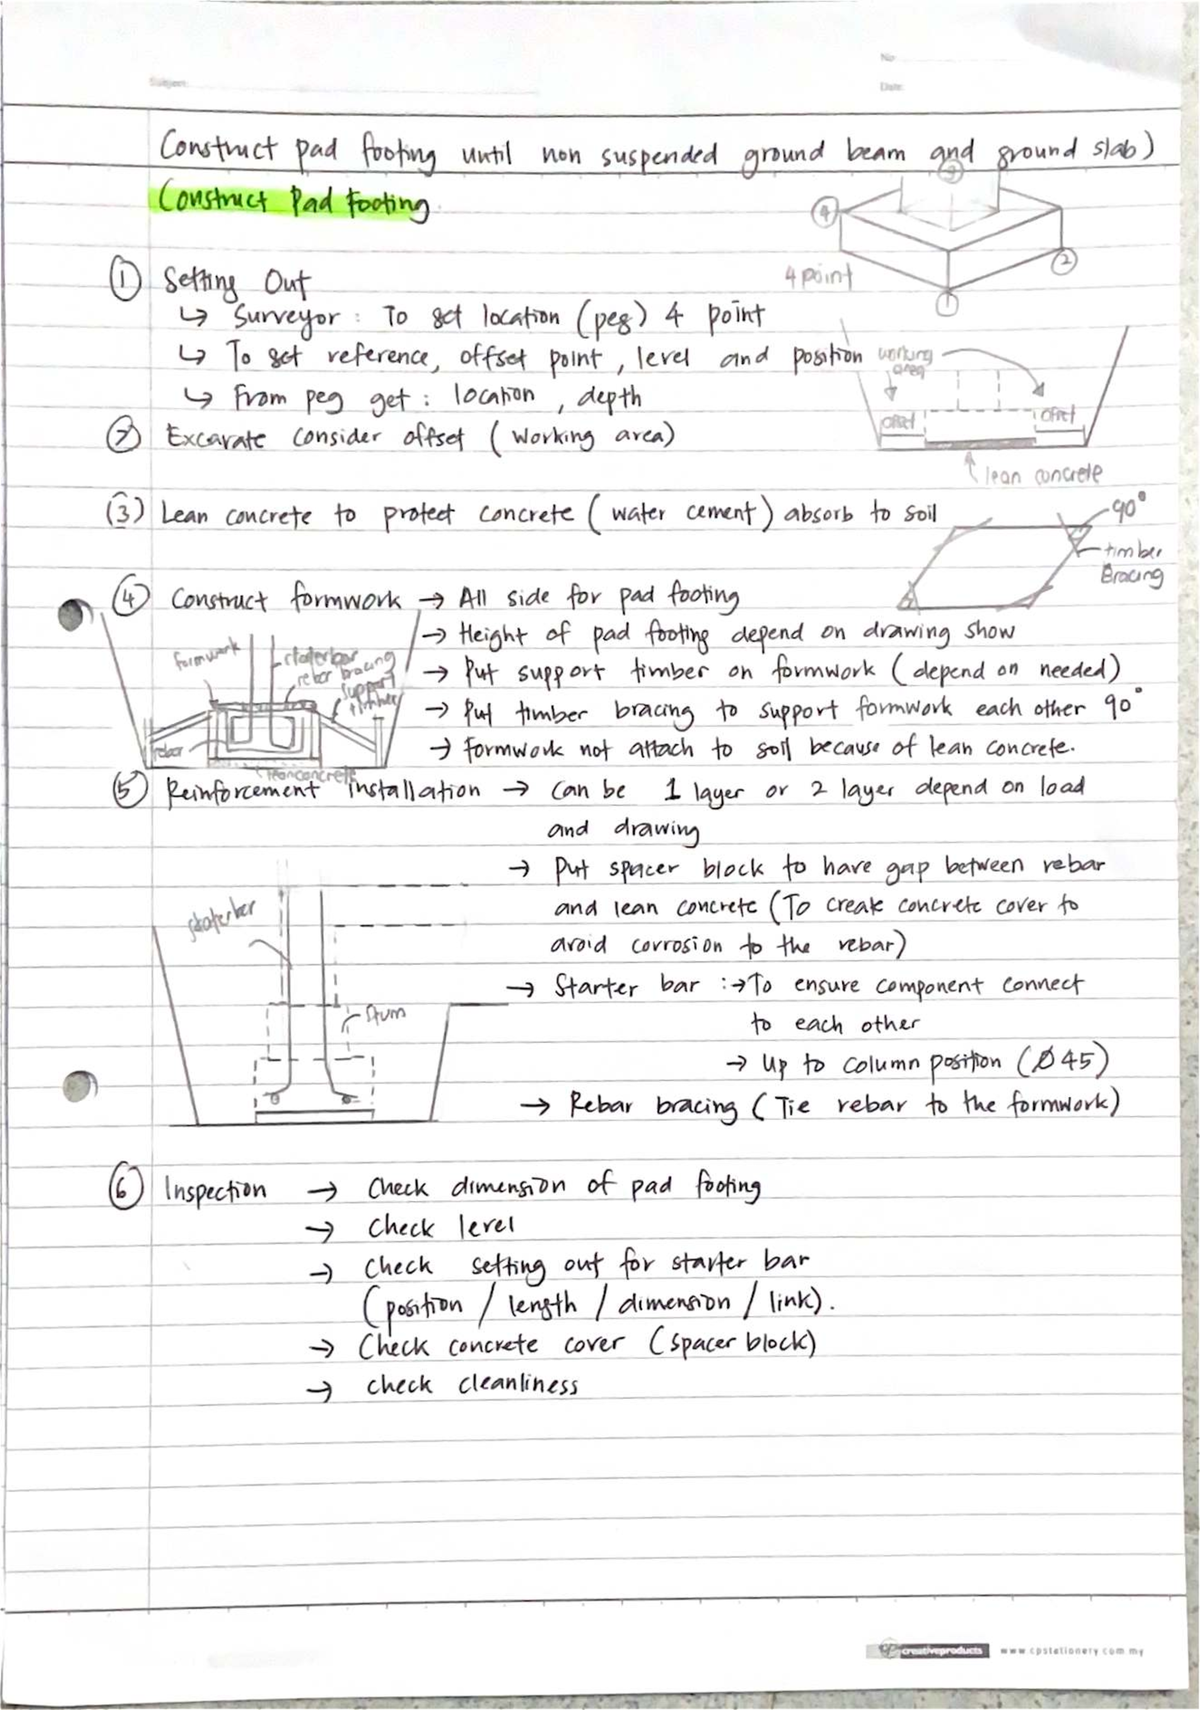 No
Subject
Date
Construct pad footing until non suspended ground beam and ground slab)
Construct Pad footing.
3
4
2
1
4 point
① Setting Out
↳ Surveyor : To set location (peg) 4 point
↳ To set reference, offset point, level and position
↳ From peg get : location, depth
working area
offset
offset
lean concrete
② Excavate Consider offset (Working area)
③ Lean concrete to protect concrete (water cement) absorb to soil
90°
timber
Bracing
④ Construct formwork → All side for pad footing
→ Height of pad footing depend on drawing show
→ Put support timber on formwork (depend on needed)
→ Put timber bracing to support formwork each other 90°
→ formwork not attach to soil because of lean concrete.
formwork
staterbar
rebar bracing
support
timber
rebar
leanconcrete
⑤ Reinforcement installation → can be 1 layer or 2 layer depend on load
and drawing
→ Put spacer block to have gap between rebar
and lean concrete (To create concrete cover to
avoid corrosion to the rebar)
→ Starter bar :→ To ensure component connect
to each other
→ Up to column position (Ø45)
→ Rebar bracing (Tie rebar to the formwork)
staterbar
Stum
⑥ Inspection → Check dimension of pad footing
→ Check level
→ Check setting out for starter bar
(position / length / dimension / link).
→ Check concrete cover (spacer block)
→ check cleanliness
cp creativeproducts www.cpstationery.com.my